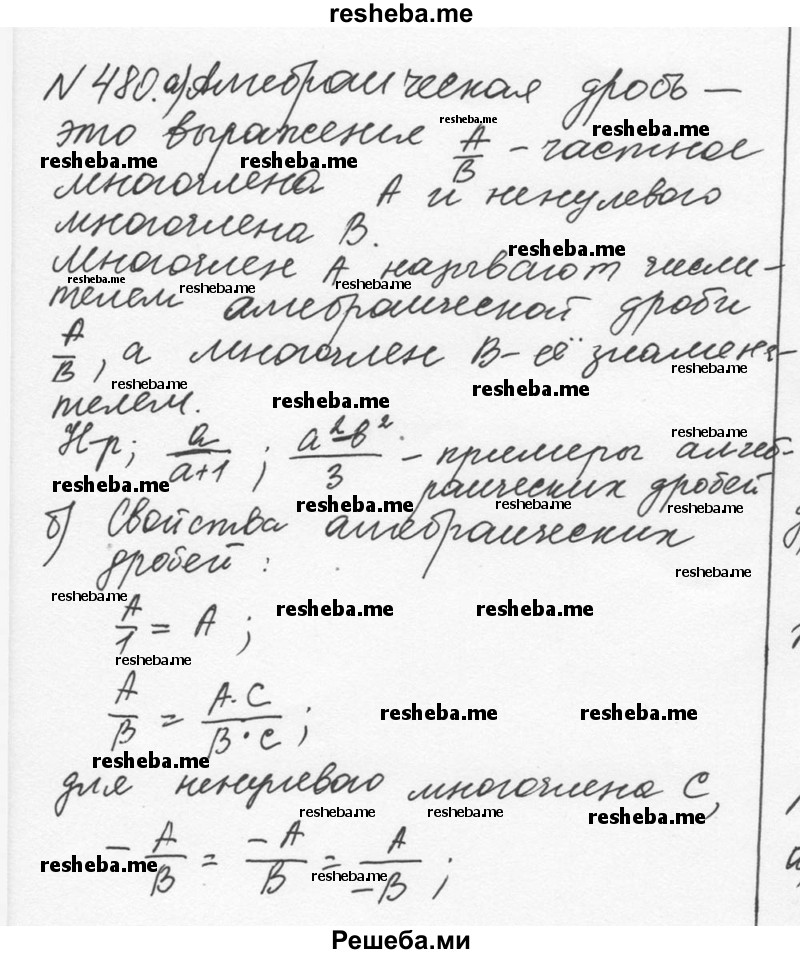 resheba.me
N 480. а) Алгебраическая дробь —
resheba.me
это выражения A/B - частное resheba.me
resheba.me resheba.me
многочлена A и ненулевого
многочлена B.
resheba.me
Многочлен A называют числи-
resheba.me resheba.me resheba.me
телем алгебраической дроби
A/B, а многочлен B - её знамена-
resheba.me resheba.me resheba.me
телем. resheba.me
Н-р; a/(a+1); (a²-b²)/3 - примеры алгеб- resheba.me
resheba.me раических дробей
resheba.me resheba.me resheba.me
б) Свойства алгебраических
дробей: resheba.me
resheba.me resheba.me resheba.me
A/1 = A;
resheba.me
A/B = A·C/B·C; resheba.me resheba.me
resheba.me
для ненулевого многочлена C,
resheba.me resheba.me resheba.me
- A/B = -A/B = A/-B;
resheba.me resheba.me
Решеба.ми